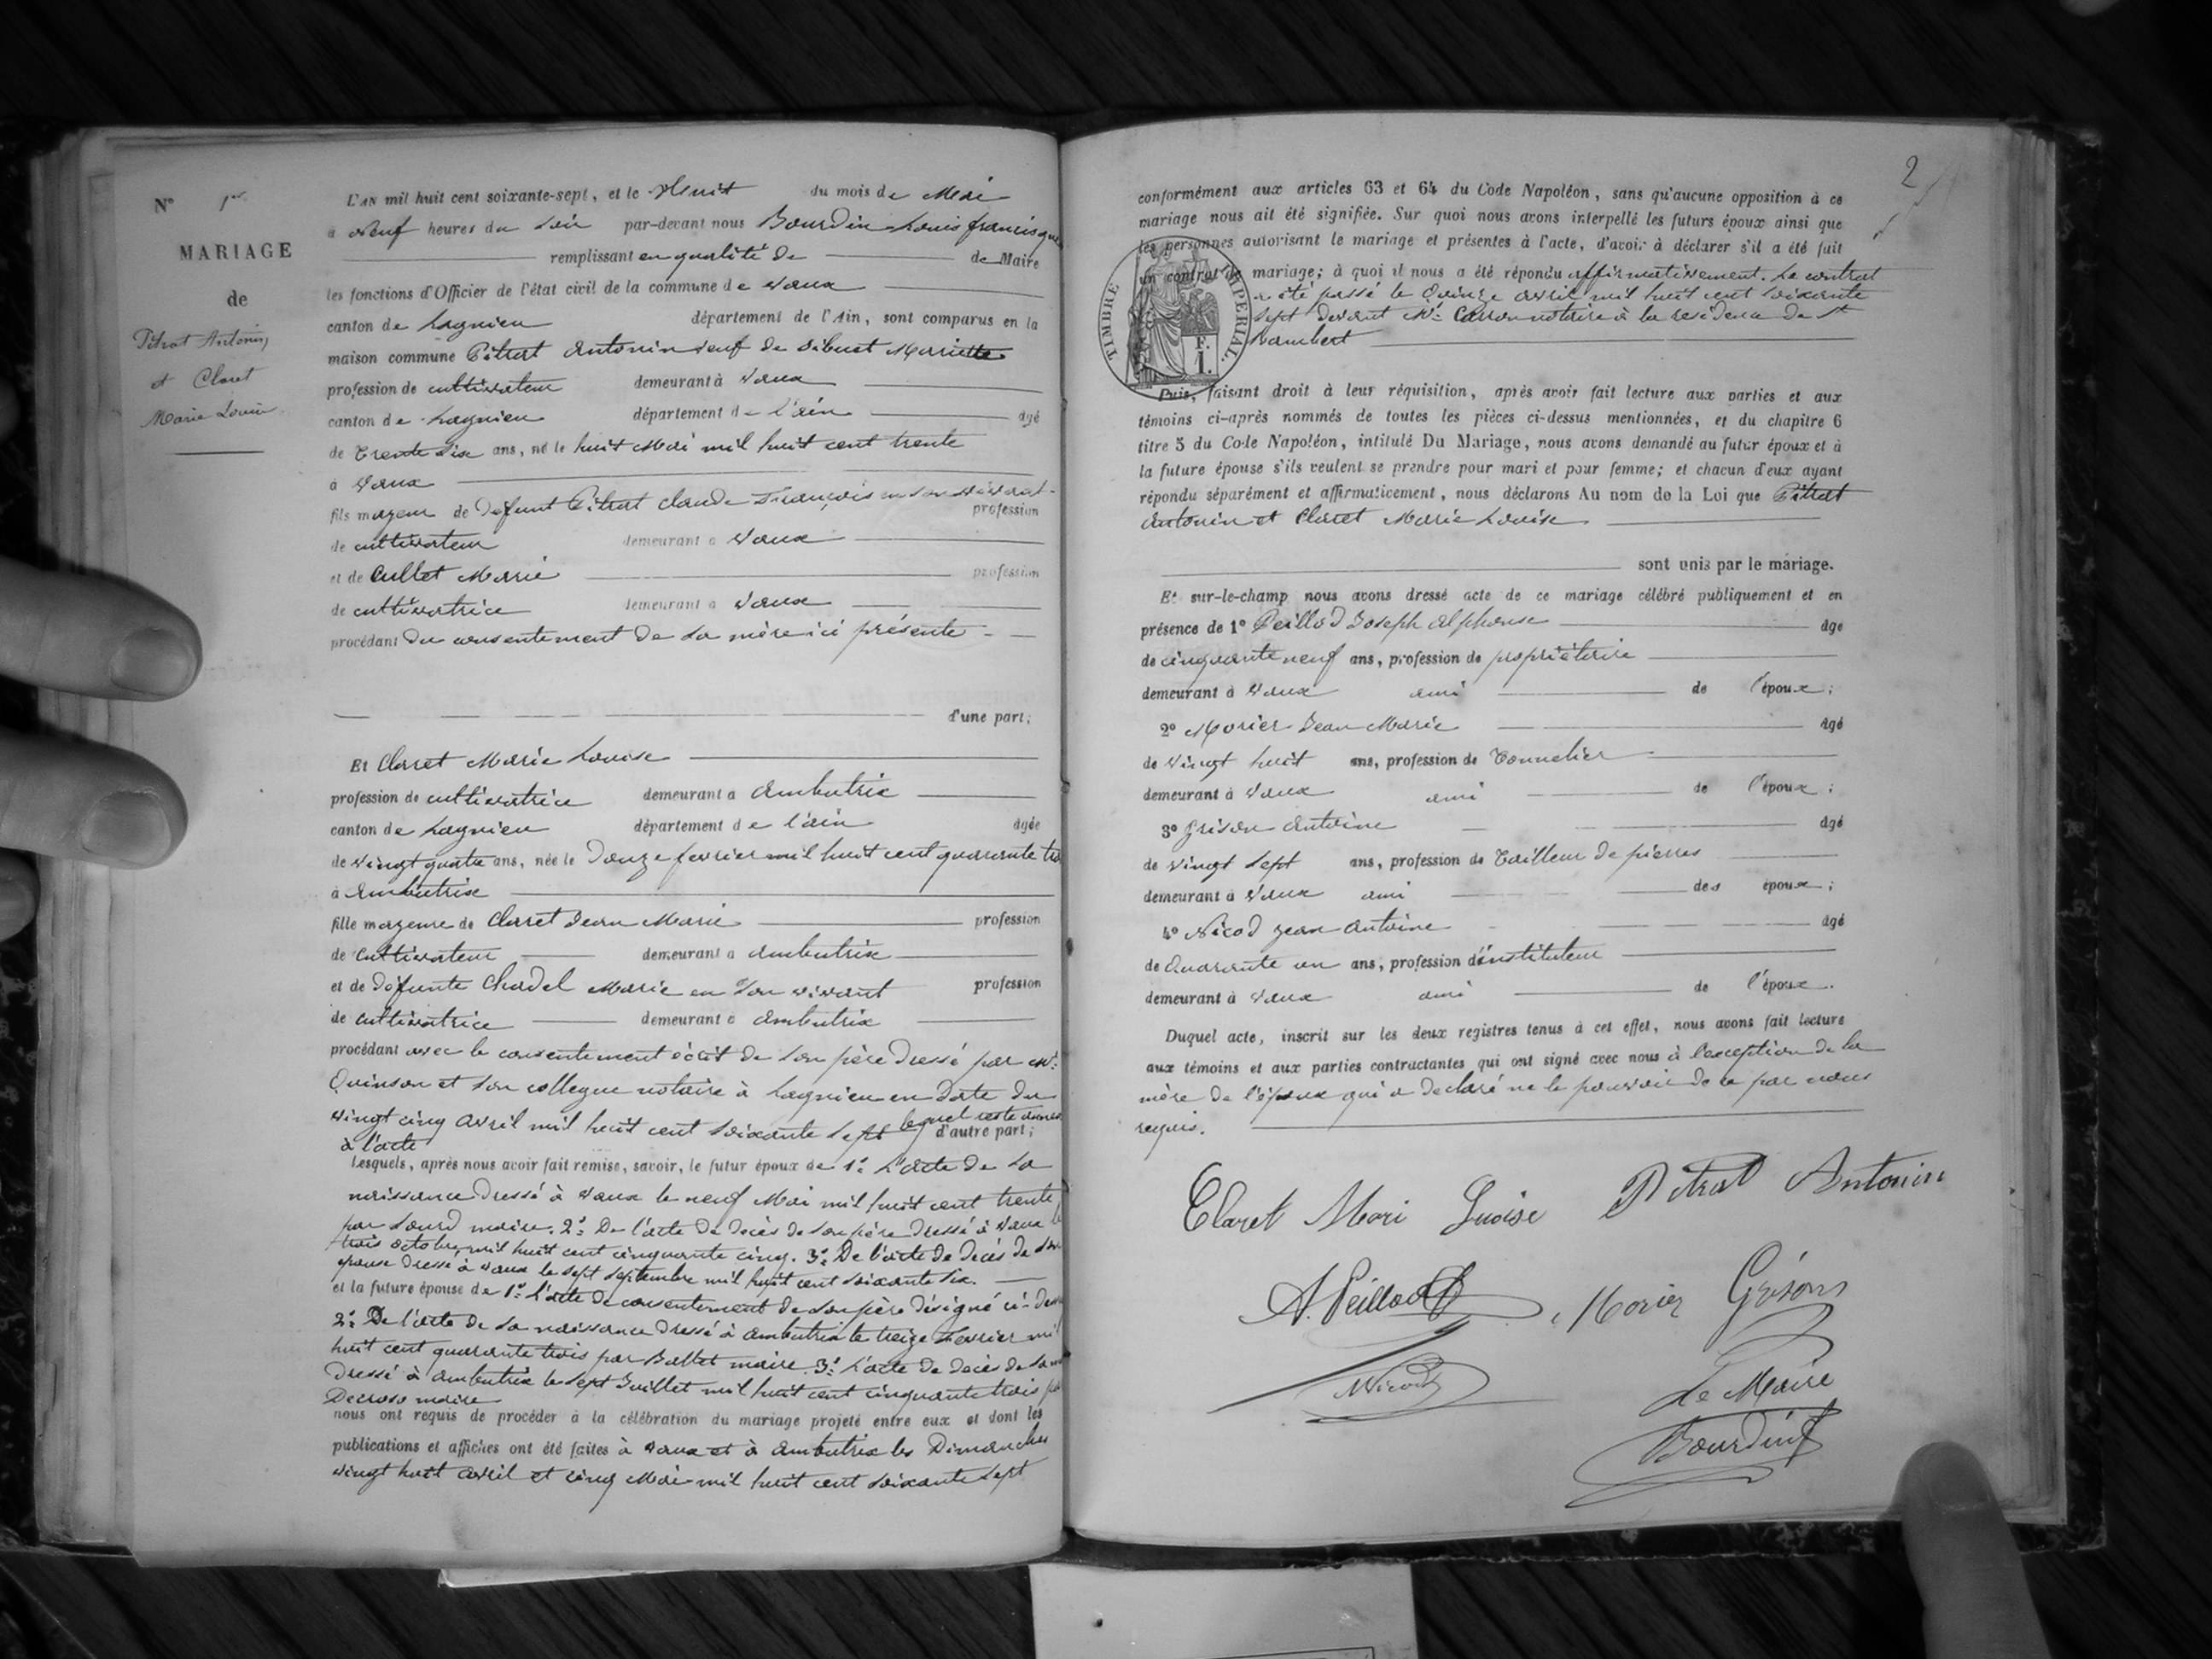 N° 1er
MARIAGE
de
Pétrat Antonin
et Claret
Marie Louise
L'AN mil huit cent soixante-sept, et le huit du mois de Mai
à neuf heures du soir par-devant nous Bourdin Louis francisque
remplissant en qualité de de Maire
les fonctions d'Officier de l'état civil de la commune de Vaux
canton de Lagnieu département de l'Ain, sont comparus en la
maison commune Pétrat Antonin veuf de Mariette
profession de cultivateur demeurant à Vaux
canton de Lagnieu département de l'ain âgé
de Trente six ans, né le huit Mai mil huit cent trente
à Vaux
fils majeur de défunt Pétrat Claude François en son vivant
profession
de cultivateur demeurant à Vaux
et de Cullet Marie profession
de cultivatrice demeurant à Vaux
procédant du consentement de sa mère ici présente
d'une part;
Et Claret Marie Louise
profession de cultivatrice demeurant à Ambutrix
canton de Lagnieu département de l'ain âgée
de vingt quatre ans, née le Douze fevrier mil huit cent quarante trois
à Ambutrix
fille majeure de Claret Jean Marie profession
de cultivateur demeurant à Ambutrix
et de défunte Chadel Marie en son vivant profession
de cultivatrice demeurant à Ambutrix
procédant avec le consentement écrit de son père dressé par Me
Quinson et son collegue notaire à Lagnieu en date du
vingt cinq avril mil huit cent soixante sept lequel reste annexé
à l'acte d'autre part;
Lesquels, après nous avoir fait remise, savoir, le futur époux de 1° L'acte de sa
naissance dressé à Vaux le neuf Mai mil huit cent trente
par maire. 2° De l'acte de décès de son père dressé à Vaux le
trois octobre mil huit cent cinquante cinq. 3° De l'acte de décès de son
épouse dressé à Vaux le sept septembre mil huit cent soixante six.
et la future épouse de 1° L'acte de consentement de son père désigné ci-dessus
2° De l'acte de sa naissance dressé à Ambutrix le treize Fevrier mil
huit cent quarante trois par Ballet maire. 3° L'acte de décès de sa
dressé à Ambutrix le sept Juillet mil huit cent cinquante trois par
Decroso maire
nous ont requis de procéder à la célébration du mariage projeté entre eux et dont les
publications et affiches ont été faites à Vaux et à Ambutrix les Dimanches
vingt huit avril et cinq Mai mil huit cent soixante sept
2
conformément aux articles 63 et 64 du Code Napoléon, sans qu'aucune opposition à ce
mariage nous ait été signifiée. Sur quoi nous avons interpellé les futurs époux ainsi que
les personnes autorisant le mariage et présentes à l'acte, d'avoir à déclarer s'il a été fait
un contrat de mariage; à quoi il nous a été répondu affirmativement. Le contrat
a été passé le Quinze avril mil huit cent soixante
sept devant Me Carron notaire à la residence de St
Rambert
TIMBRE IMPERIAL.
F.
1.
Puis, faisant droit à leur réquisition, après avoir fait lecture aux parties et aux
témoins ci-après nommés de toutes les pièces ci-dessus mentionnées, et du chapitre 6
titre 5 du Code Napoléon, intitulé Du Mariage, nous avons demandé au futur époux et à
la future épouse s'ils veulent se prendre pour mari et pour femme; et chacun d'eux ayant
répondu séparément et affirmativement, nous déclarons Au nom de la Loi que Pétrat
Antonin et Claret Marie Louise
sont unis par le mariage.
Et sur-le-champ nous avons dressé acte de ce mariage célébré publiquement et en
présence de 1° Peillod Joseph Alphonse âgé
de cinquante neuf ans, profession de propriétaire
demeurant à Vaux ami de l'époux;
2° Morier Jean Marie âgé
de vingt huit ans, profession de Tonnelier
demeurant à Vaux ami de l'époux;
3° Grison Antoine âgé
de vingt sept ans, profession de Tailleur de pierres
demeurant à Vaux ami des époux;
4° Nicod Jean Antoine âgé
de Quarante un ans, profession d'instituteur
demeurant à Vaux ami de l'époux.
Duquel acte, inscrit sur les deux registres tenus à cet effet, nous avons fait lecture
aux témoins et aux parties contractantes qui ont signé avec nous à l'exception de la
mère de l'époux qui a declaré ne le pouvoir de ce par nous
requis.
Claret Mari Luoise Pétrat Antonin
A. Peillod Morier Grison
Nicod
Le Maire
Bourdin